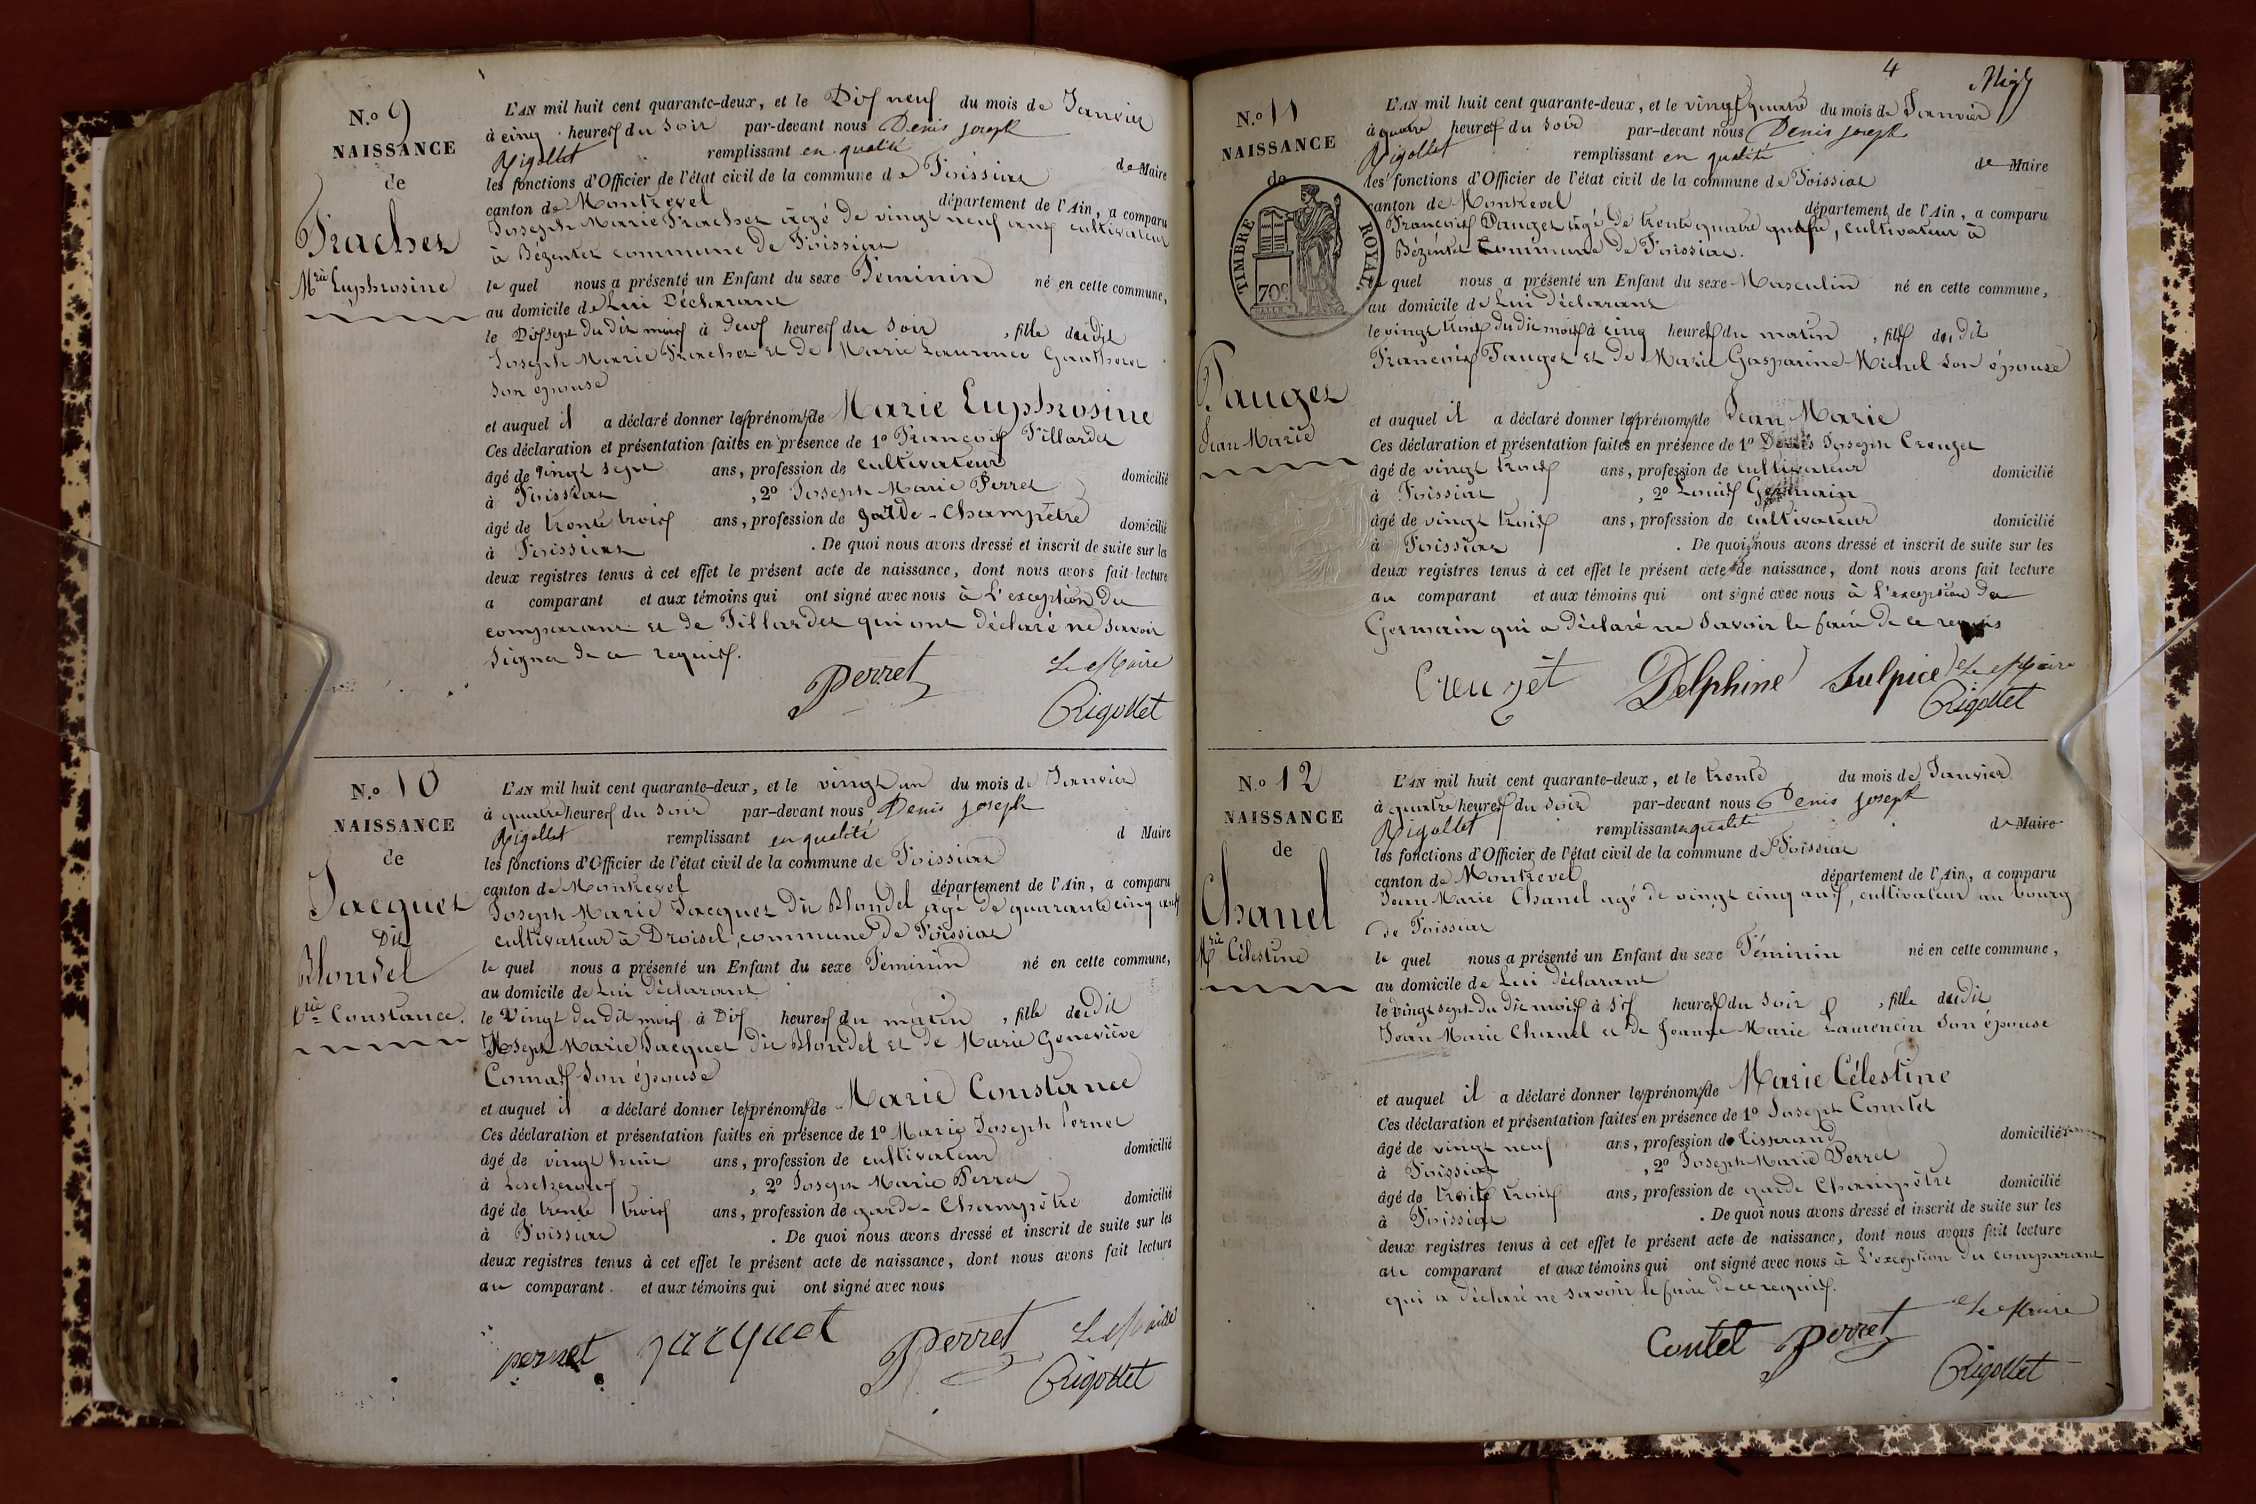 N.o 9
NAISSANCE
de
Frachet
Mrie Euphrosine
L'AN mil huit cent quarante-deux, et le Dix neuf du mois de Janvier
à cinq heures du soir par-devant nous Denis joseph
Rigollet remplissant en qualité de Maire
les fonctions d'Officier de l'état civil de la commune de Foissiat
canton de Montrevel département de l'Ain, a comparu
Joseph Marie Frachet âgé de vingt neuf ans cultivateur
à Bézentet commune de Foissiat
le quel nous a présenté un Enfant du sexe Féminin né en cette commune,
au domicile de Lui Déclarant
le Dix sept du dit mois à deux heures du soir, fille du dit
Joseph Marie Frachet et de Marie Laurence Gauthier
son épouse
et auquel il a déclaré donner les prénoms de Marie Euphrosine
Ces déclaration et présentation faites en présence de 1o François Tillardet
âgé de vingt sept ans, profession de cultivateur domicilié
à Foissiat, 2o Joseph Marie Perret
âgé de trente trois ans, profession de garde-Champêtre domicilié
à Foissiat. De quoi nous avons dressé et inscrit de suite sur les
deux registres tenus à cet effet le présent acte de naissance, dont nous avons fait lecture
a comparant et aux témoins qui ont signé avec nous à L'exception du
comparant et de Tillardet qui ont déclaré ne savoir
signer de ce requis.
Perret Le Maire
Rigollet
N.o 10
NAISSANCE
de
Jacquet
Dit
Blondel
Mrie Constance.
L'AN mil huit cent quarante-deux, et le vingt un du mois de Janvier
à quatre heures du soir par-devant nous Denis joseph
Rigollet remplissant en qualité d Maire
les fonctions d'Officier de l'état civil de la commune de Foissiat
canton de Montrevel département de l'Ain, a comparu
Joseph Marie Jacquet Dit Blondel âgé de quarante cinq ans
cultivateur à Droisel, commune de Foissiat
le quel nous a présenté un Enfant du sexe Féminin né en cette commune,
au domicile de Lui Déclarant
le Vingt du dit mois à Dix heures du matin, fille du dit
Joseph Marie Jacquet Dit Blondel et de Marie Geneviève
Comas son épouse
et auquel il a déclaré donner les prénoms de Marie Constance
Ces déclaration et présentation faites en présence de 1o Marie Joseph Pernet
âgé de vingt huit ans, profession de cultivateur domicilié
à, 2o Joseph Marie Perret
âgé de trente trois ans, profession de garde-Champêtre domicilié
à Foissiat. De quoi nous avons dressé et inscrit de suite sur les
deux registres tenus à cet effet le présent acte de naissance, dont nous avons fait lecture
au comparant. et aux témoins qui ont signé avec nous
pernet jacquet Perret Le Maire
Rigollet
4
N.o 11
NAISSANCE
de
TIMBRE ROYAL
70c
Pauget
Jean Marie
L'AN mil huit cent quarante-deux, et le vingt quatre du mois de Janvier
à quatre heures du soir par-devant nous Denis joseph
Rigollet remplissant en qualité de Maire
les fonctions d'Officier de l'état civil de la commune de Foissiat
canton de Montrevel département de l'Ain, a comparu
François Pauget âgé de trente quatre ans, cultivateur à
Bézentet Commune de Foissiat.
le quel nous a présenté un Enfant du sexe Masculin né en cette commune,
au domicile de Lui déclarant
le vingt trois du dit mois à cinq heures du matin, fils du Dit
François Pauget et de Marie Gasparine Michel son épouse
et auquel il a déclaré donner les prénoms de Jean Marie
Ces déclaration et présentation faites en présence de 1o Denis Joseph Creuzet
âgé de vingt trois ans, profession de cultivateur domicilié
à Foissiat, 2o Louis Germain
âgé de vingt trois ans, profession de cultivateur domicilié
à Foissiat. De quoi nous avons dressé et inscrit de suite sur les
deux registres tenus à cet effet le présent acte de naissance, dont nous avons fait lecture
au comparant et aux témoins qui ont signé avec nous à L'exception de
Germain qui a déclaré ne savoir le faire de ce requis
Creuzet Delphine Sulpice Le Maire
Rigollet
N.o 12
NAISSANCE
de
Chanel
Mrie Célestine
L'AN mil huit cent quarante-deux, et le trente du mois de Janvier
à quatre heures du soir par-devant nous Denis joseph
Rigollet remplissant en qualité de Maire
les fonctions d'Officier de l'état civil de la commune de Foissiat
canton de Montrevel département de l'Ain, a comparu
Jean Marie Chanel agé de vingt cinq ans, cultivateur au bourg
de Foissiat
le quel nous a présenté un Enfant du sexe Féminin né en cette commune,
au domicile de Lui déclarant
le vingt sept du dit mois à six heures du soir, fille du dit
Jean Marie Chanel et de Jeanne Marie Laurencin son épouse
et auquel il a déclaré donner les prénoms de Marie Célestine
Ces déclaration et présentation faites en présence de 1o Joseph Comtet
âgé de vingt neuf ans, profession de tisserand domicilié
à Foissiat, 2o Joseph Marie Perret
âgé de trente trois ans, profession de garde Champêtre domicilié
à Foissiat. De quoi nous avons dressé et inscrit de suite sur les
deux registres tenus à cet effet le présent acte de naissance, dont nous avons fait lecture
au comparant et aux témoins qui ont signé avec nous à L'exception du comparant
qui a déclaré ne savoir le faire de ce requis.
Contet Perret Le Maire
Rigollet